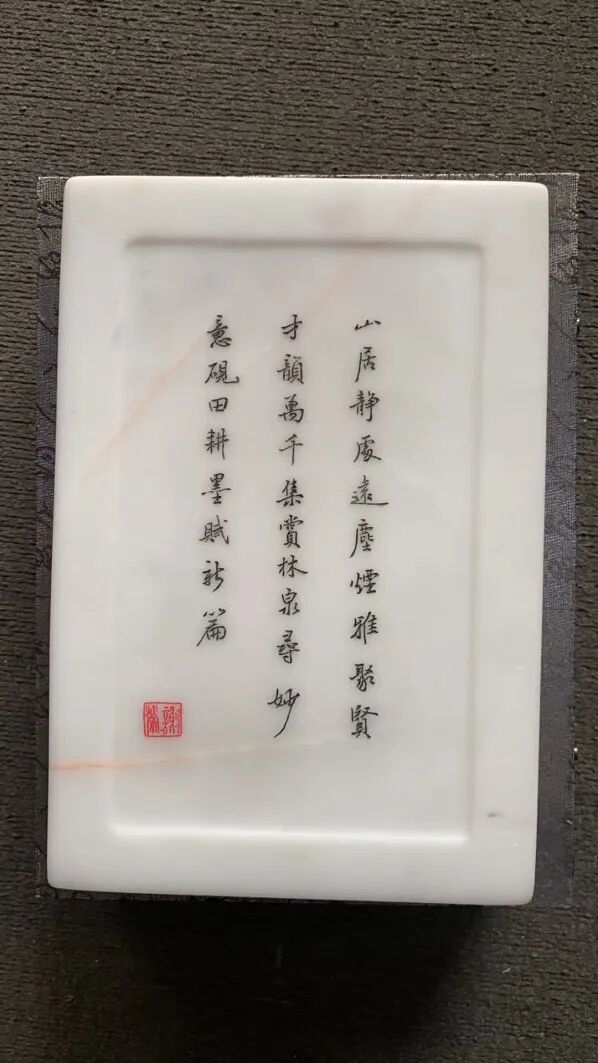 山居静處遠塵煙雅聚賢
才韻萬千集賞林泉尋妙
意硯田耕墨賦新篇